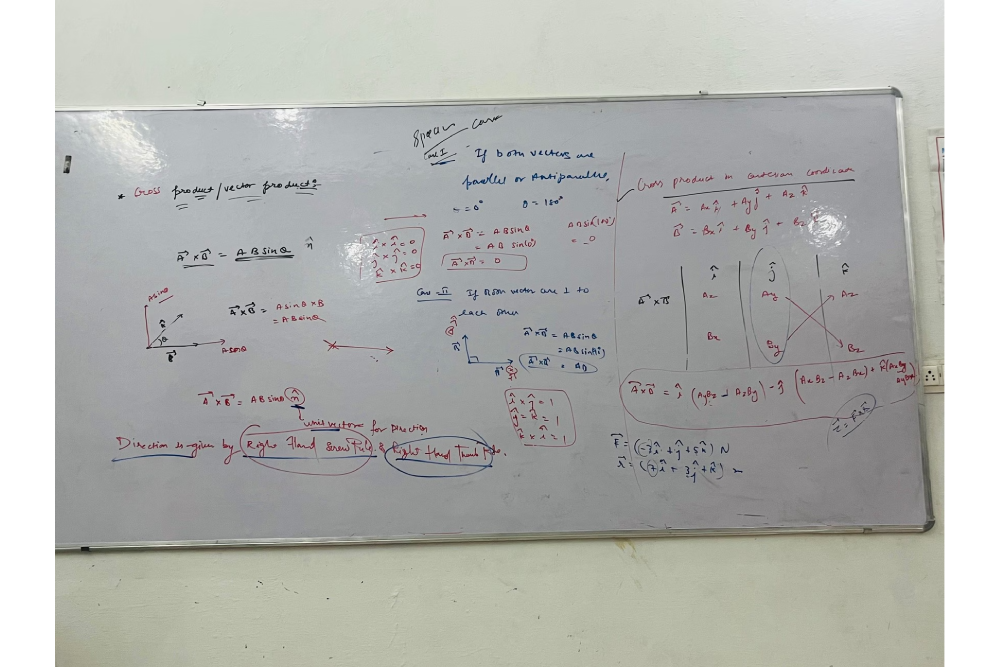 * Cross product/vector product:
A⃗ × B⃗ = AB sinθ n̂
Asinθ
A⃗
θ
B⃗
Acosθ
A⃗×B⃗ = Asinθ × B
= ABsinθ
A⃗ × B⃗ = AB sinθ n̂
unit vector for Direction
Direction is given by Right Hand Screw Rule & Right Hand Thumb Rule.
Case I If both vectors are
parallel or Antiparallel,
= 0° θ = 180°
î × î = 0
ĵ × ĵ = 0
k̂ × k̂ = 0
A⃗×B⃗ = ABsinθ
= AB sin(0°)
A⃗×B⃗ = 0
ABsin(180°)
= 0
Case-II If Both vector are ⊥ to
each other
A⃗×B⃗ = ABsinθ
= ABsin(90°)
A⃗×B⃗ = AB
î × ĵ = 1
ĵ × k̂ = 1
k̂ × î = 1
Cross product in Cartesian coordinate
A⃗ = Ax î + Ay ĵ + Az k̂
B⃗ = Bx î + By ĵ + Bz k̂
î ĵ k̂
A⃗×B⃗ Ax Ay Az
Bx By Bz
A⃗×B⃗ = î (AyBz - AzBy) - ĵ (AxBz - AzBx) + k̂ (AxBy
F⃗ = (-3î + ĵ + 5k̂) N
r⃗ = (7î + 3ĵ + k̂)